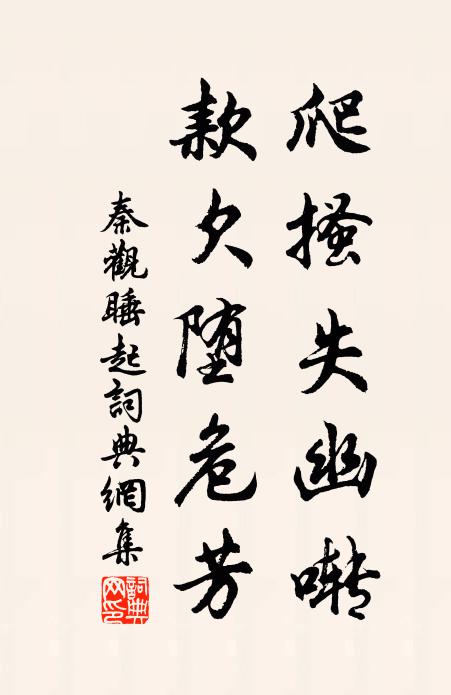 爬搔失幽囀
款欠墮危芳
秦觀睡起詞典網集
詞典網印